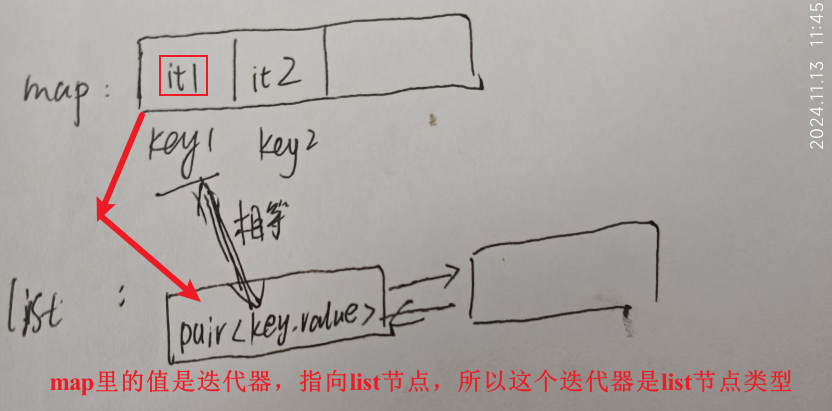 2024.11.13 11:45
map: it1 it2
key1 key2
相等
list : pair<key.value>
map里的值是迭代器，指向list节点，所以这个迭代器是list节点类型